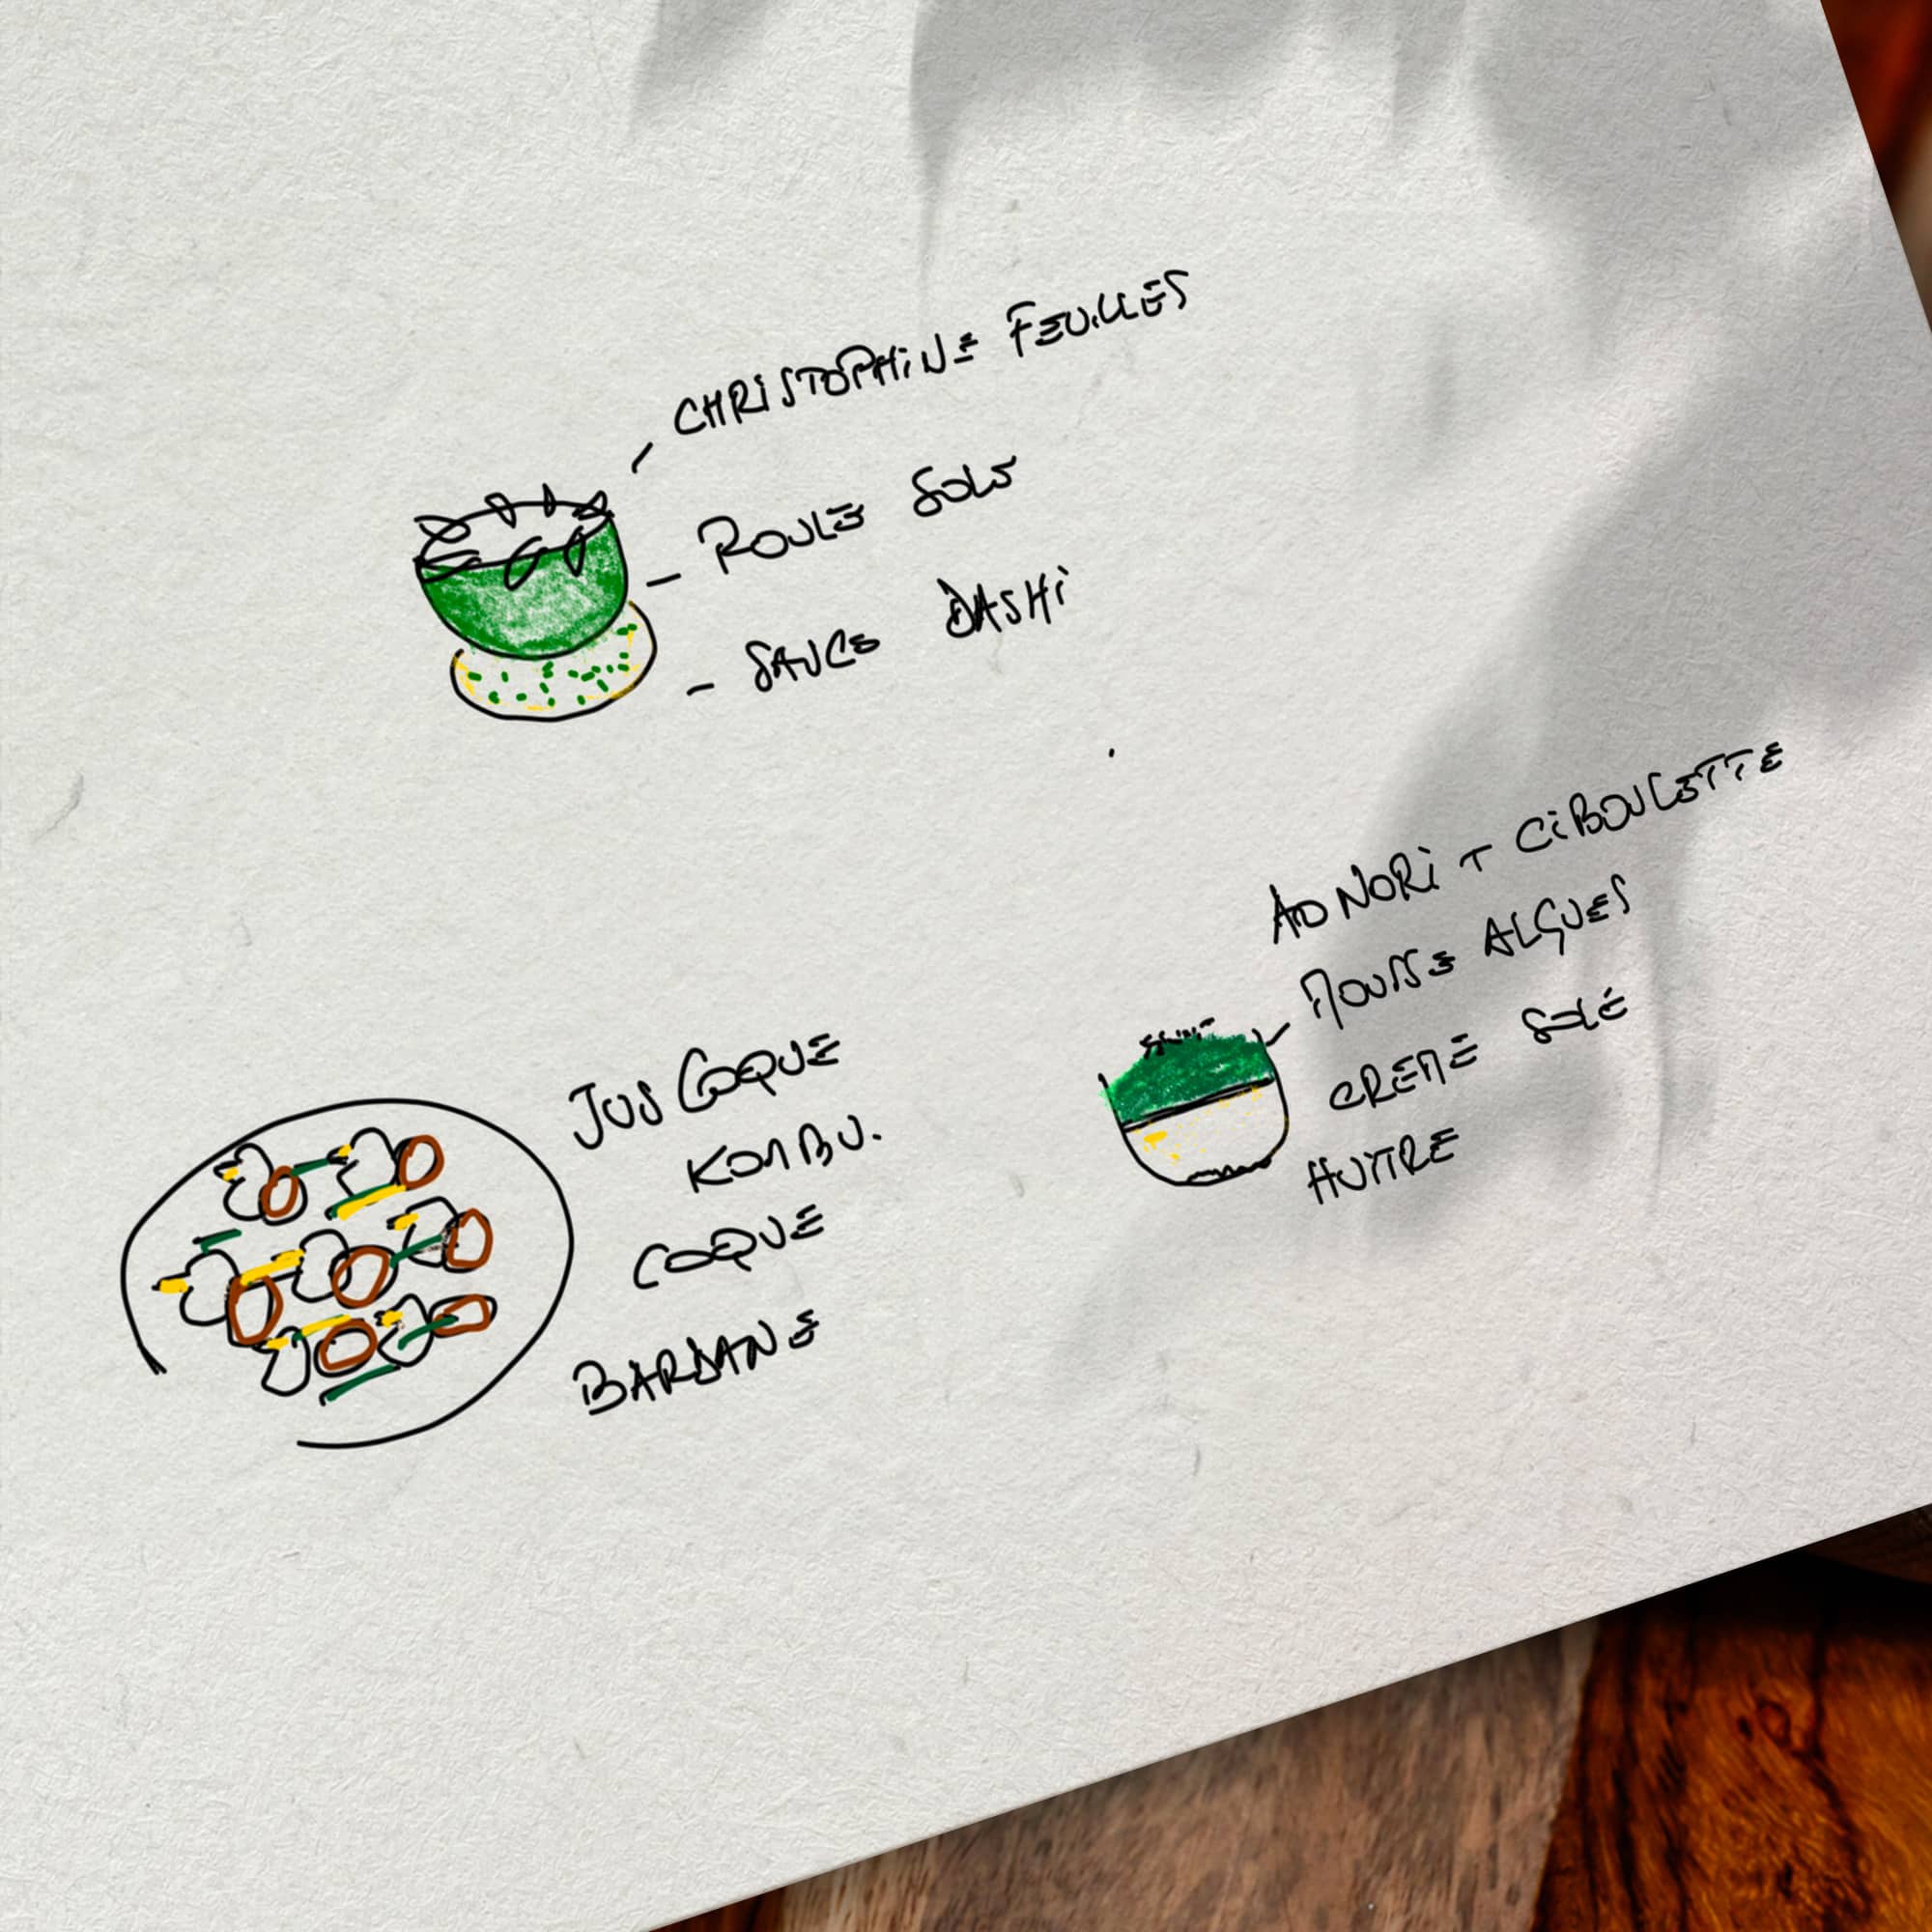 CHRISTOPHINE FEUILLES
- ROULE SOLE
- SAUCE DASHI
AO NORI + CIBOULETTE
MOUSSE ALGUES
CREME SOLE
HUITRE
JUS COQUE
KOMBU.
COQUE
BARDANE